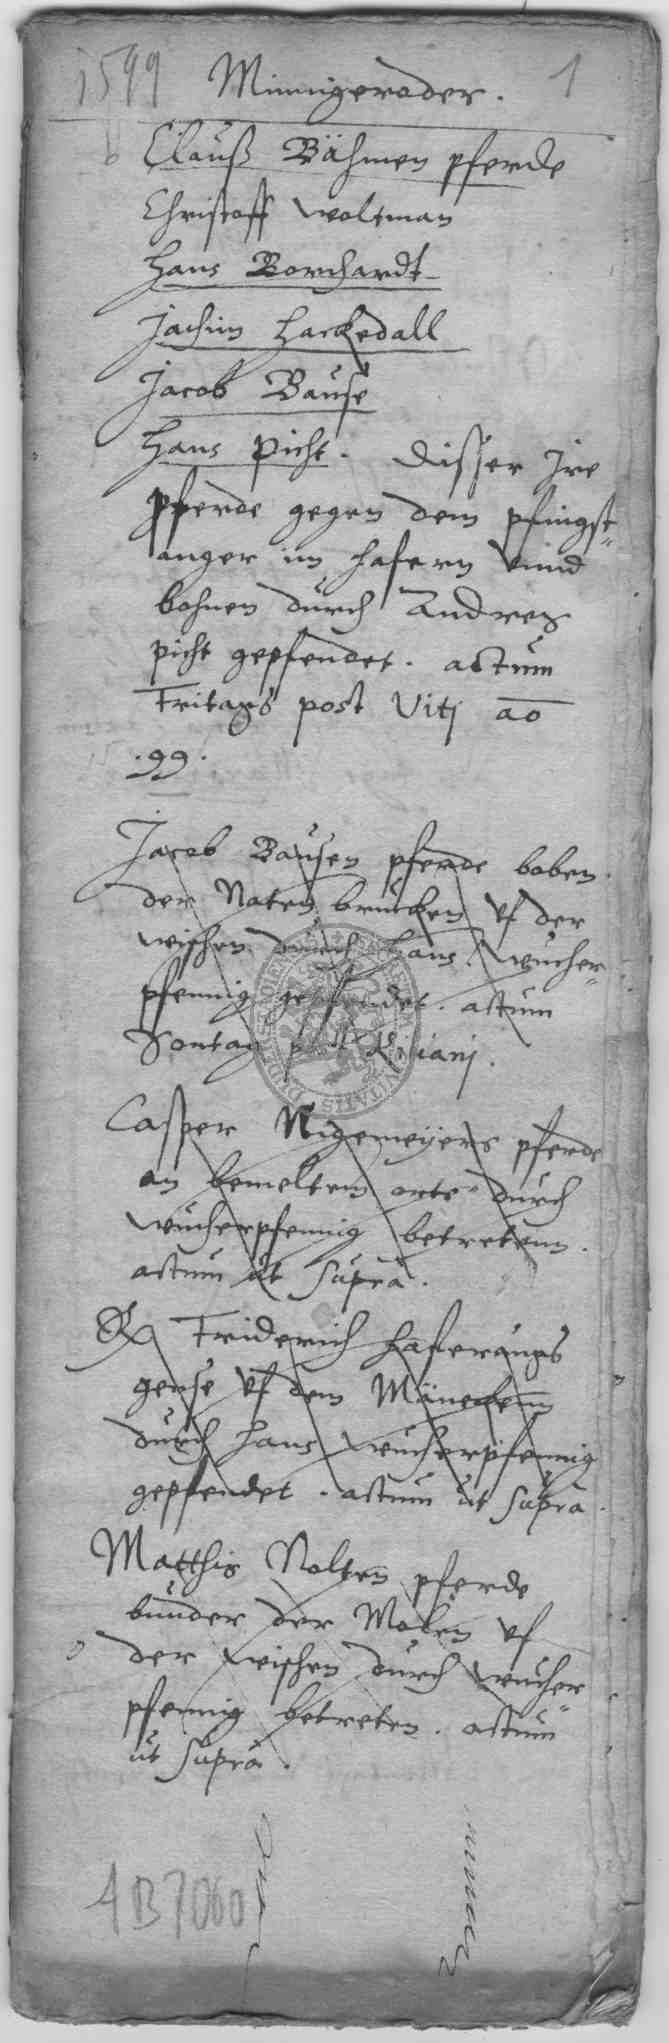 1599 Minnigeroder. 1
Clauß Bähmen pferde
Christoff Woltman
Hans Borchardt
Jachim Hackedall
Jacob Bause
Hans Picht. disser Jre
pferde gegen dem pfingst-
anger im hafern vnnd
bohnen durch Andres
Picht gepfendet. actum
Freitags post Viti ao
.99.
Jacob Bausen pferde boben
der Naten brucken vf der
wischen durch Hans Wucher-
pfennig gepfendet. actum
Sontag post Kiliani.
Casper Nigemeÿers pferde
an bemeltem orte durch
Wucherpfennig betretenn.
actum ut supra.
Friderich Haferungs
gense vf dem
durch Hans Wucherpfennig
gepfendet. actum ut supra.
Matthis Nolten pferde
bunder der Molen vf
der wischen durch Wucher-
pfennig betreten. actum
ut supra.
4B7060